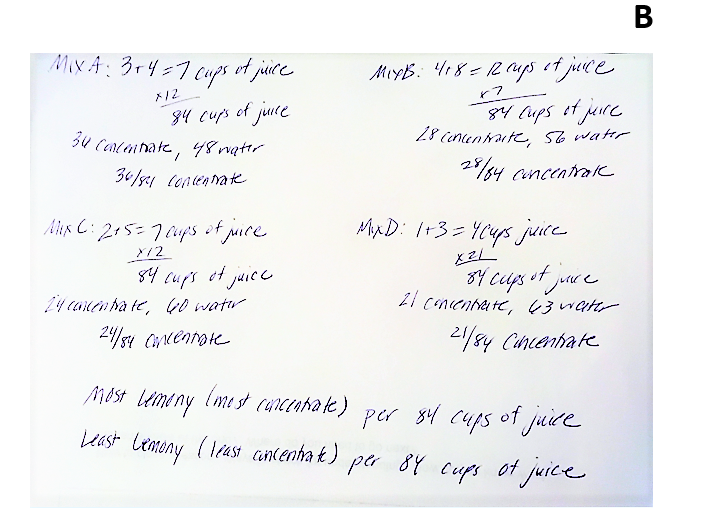 B
Mix A: 3+4=7 cups of juice
x12
84 cups of juice
36 concentrate, 48 water
36/84 concentrate
Mix B: 4+8=12 cups of juice
x7
84 cups of juice
28 concentrate, 56 water
28/84 concentrate
Mix C: 2+5=7 cups of juice
x12
84 cups of juice
24 concentrate, 60 water
24/84 concentrate
Mix D: 1+3=4 cups juice
x21
84 cups of juice
21 concentrate, 63 water
21/84 concentrate
Most Lemony (most concentrate) per 84 cups of juice
Least Lemony (least concentrate) per 84 cups of juice